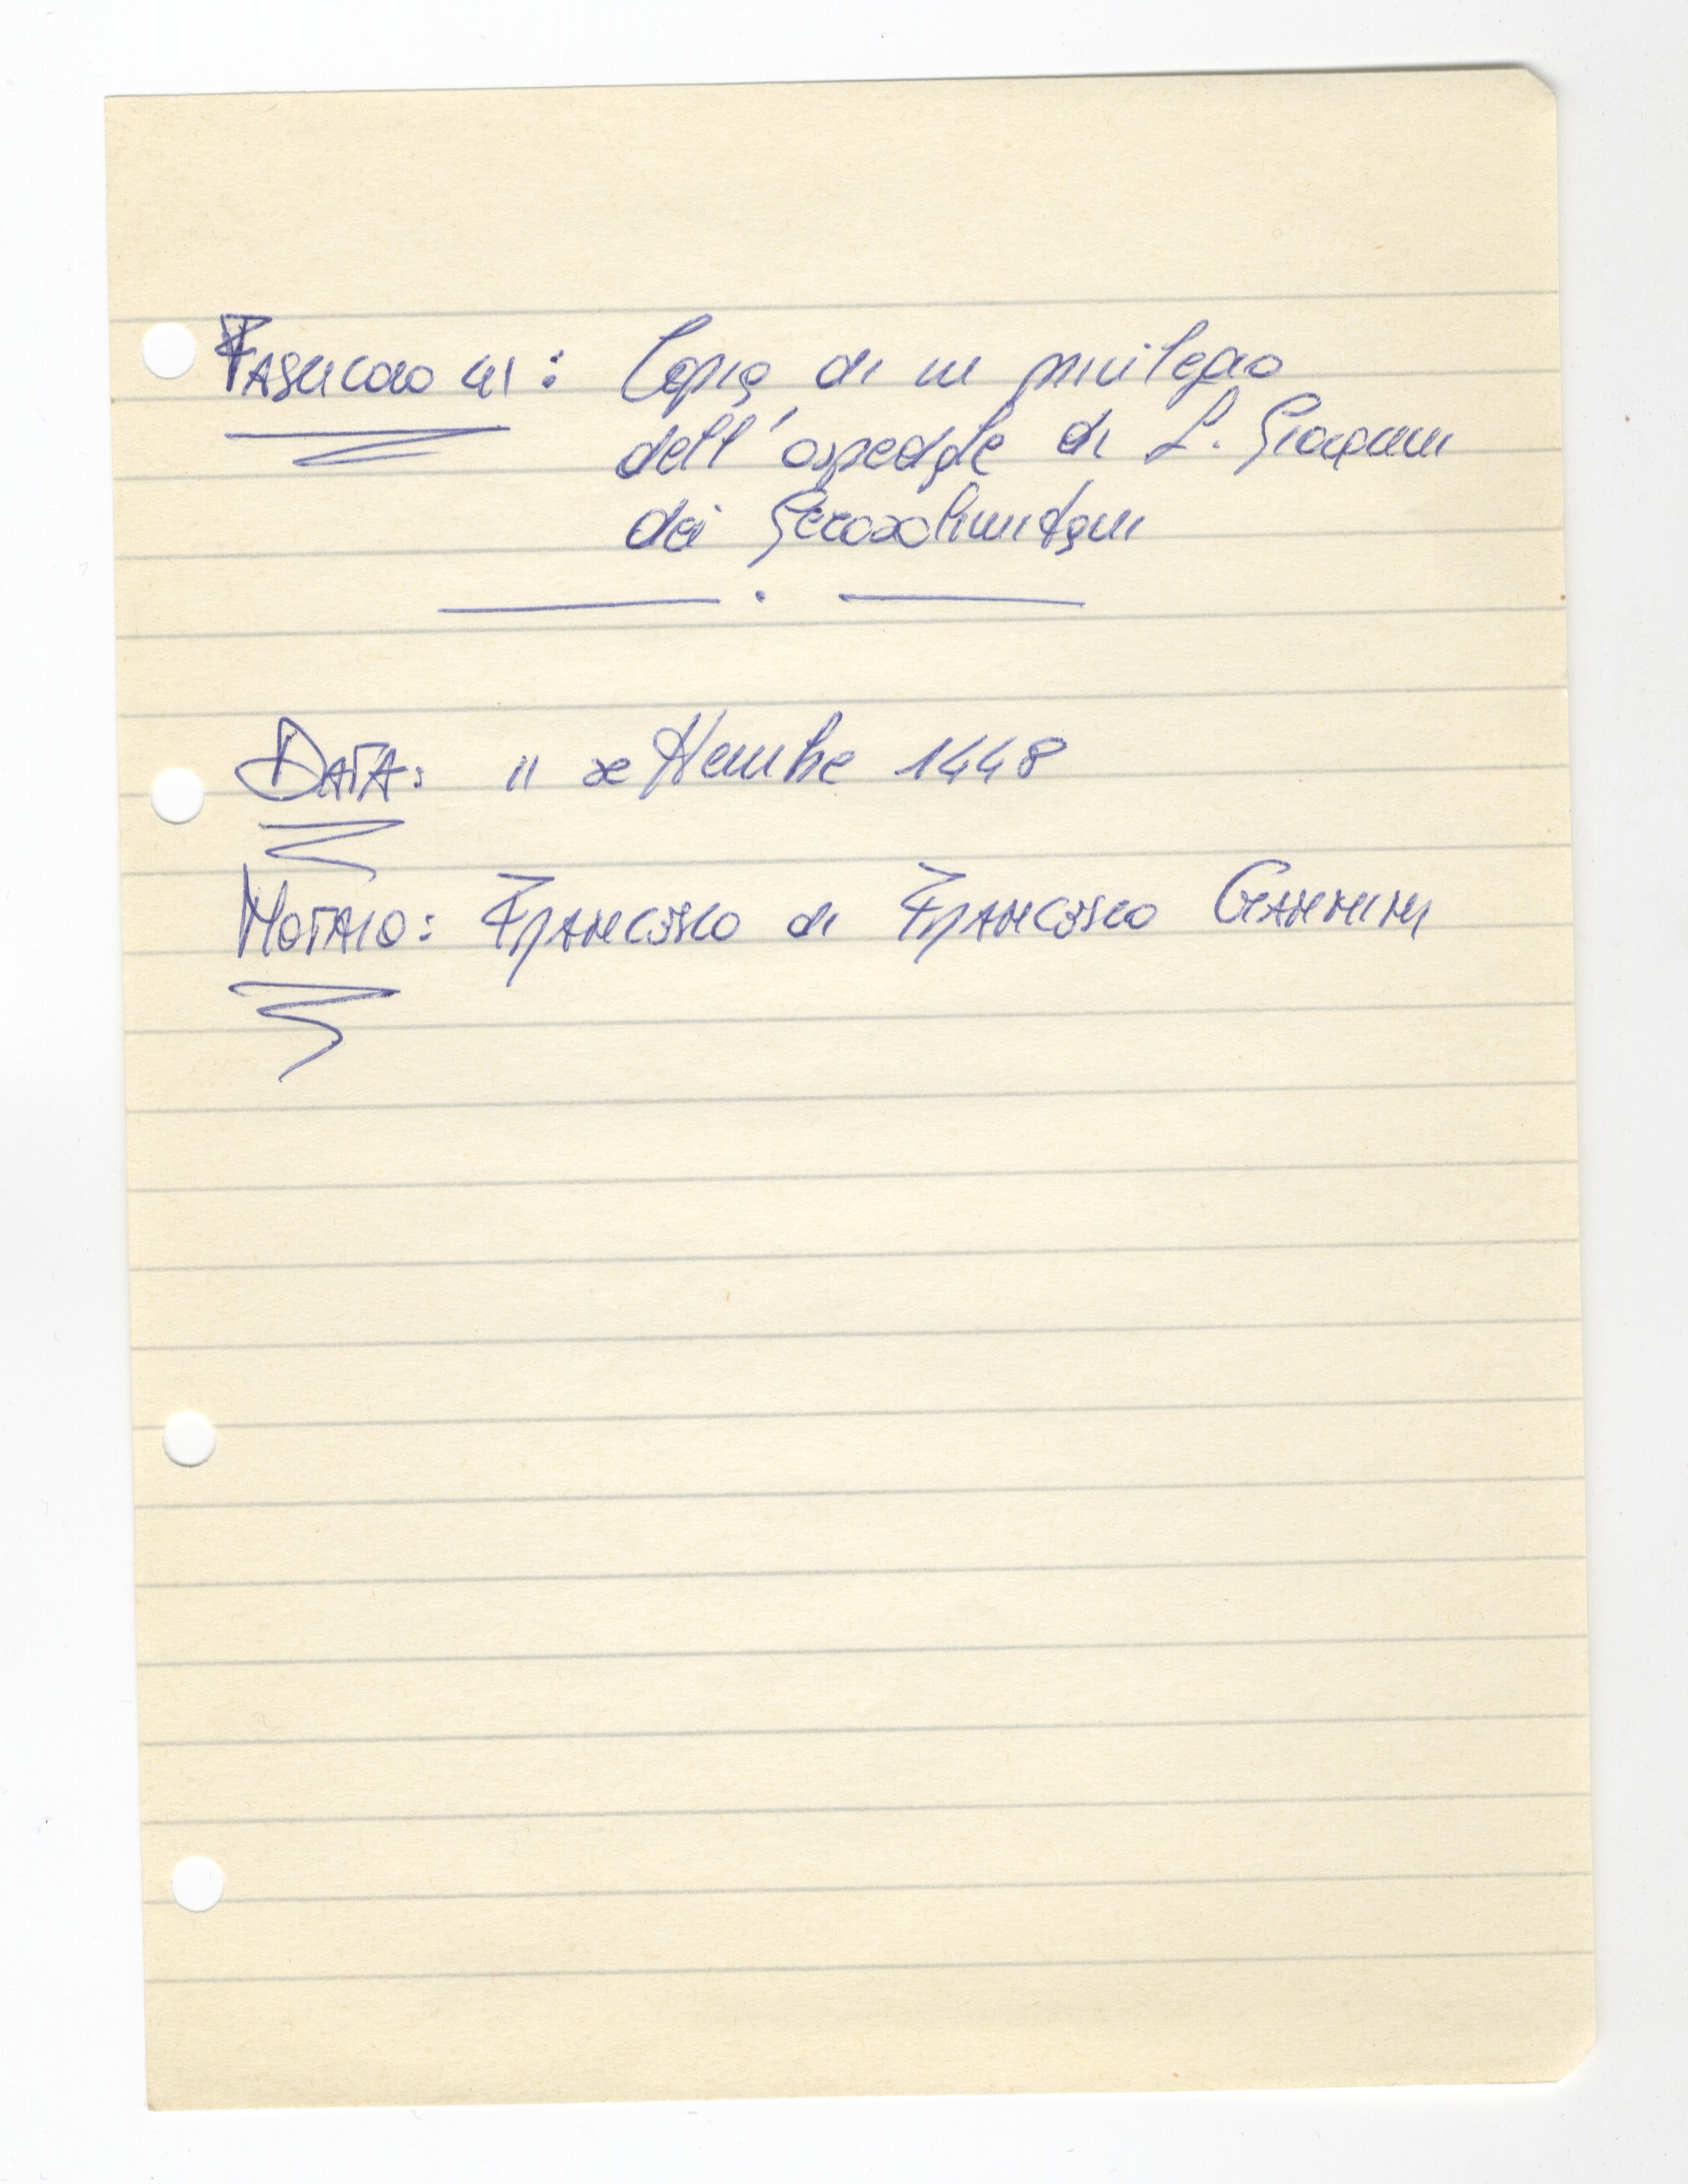 FASCICOLO 41: Copia di un privilegio
dell'ospedale di S. Giovanni
dei Gerosolimitani
DATA: 11 settembre 1448
NOTAIO: FRANCESCO di FRANCESCO GIANNINI